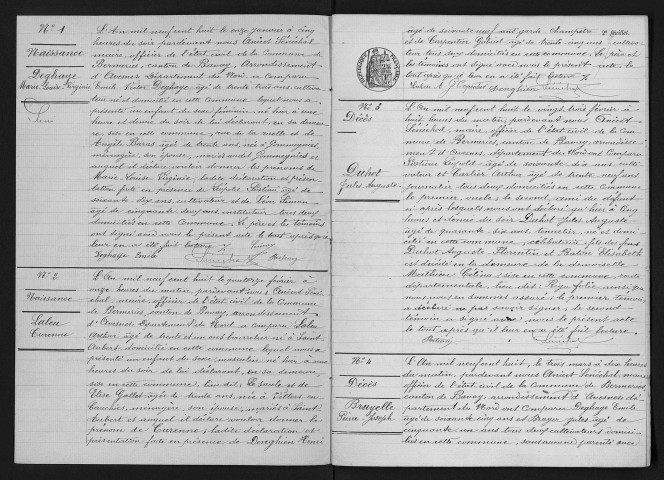 N° 1
Naissance
Deghaye
Marie Louise Virginie
L'An mil neuf cent huit le onze janvier à cinq
heures du soir pardevant nous Anicet Sénéchal
maire, officier de l'état civil de la Commune de
Bermeries, canton de Bavay, Arrondissement
d'Avesnes Département du Nord, a comparu
Emile Victor Deghaye âgé de trente ans, cultiva-
teur né et domicilié en cette commune lequel nous a
présenté un enfant du sexe féminin né hier à une
heure et demie du soir de lui déclarant, en sa demeu-
re, sise en cette commune, rue de la ruelle et de
Angèle Baras âgée de trente ans, née à Gommegnies,
ménagère, son épouse, mariés à Gommegnies et
auquel il déclare vouloir donner les prénoms de
Marie Louise Virginie, ladite déclaration et présen-
tation faite en présence de Léopold Sestian âgé de
soixante dix ans, cultivateur et de Léon Simon
âgé de cinquante deux ans instituteur tous deux
domiciliés en cette commune. Le père et les témoins
ont signé avec nous le présent acte le tout après que
leur en a été fait lecture
Deghaye Emile
N° 2
Naissance
Laleu
Turenne
L'An mil neuf cent huit le quatorze février à
onze heures du matin, pardevant nous Anicet Séné-
chal maire, officier de l'état civil de la Commune
de Bermeries, canton de Bavay, arrondissement
d'Avesnes, Département du Nord a comparu Laleu
Arthur âgé de trente et un ans bourrelier né à Saint
Aubert domicilié en cette commune lequel nous a
présenté un enfant du sexe masculin né hier, à une
heure du soir de lui déclarant, en sa demeure,
sise en cette commune, lieu dit: Le
Elise Gallet âgée de trente ans, née à Villers en
Cauchies, ménagère, son épouse, mariés à Saint
Aubert et auquel il déclare vouloir donner le
prénom de Turenne; ladite déclaration et
présentation faite en présence de Denghien Henri
2e feuillet
âgé de soixante sept ans garde champêtre
et de Carpentier Gabriel âgé de trente cinq ans cultiva-
teur tous deux domiciliés en cette commune. Le père et
les témoins ont signé avec nous le présent acte, le
tout après que leur en a été fait lecture
N° 3
Décès
Duhot
Jules Auguste
L'An mil neuf cent huit le vingt trois février à
huit heures du matin, pardevant nous Anicet
Sénéchal, maire, officier de l'état civil de la Com-
mune de Bermeries, canton de Bavay, arrondisse-
ment d'Avesnes, département du Nord ont comparu
Sestian Léopold âgé de soixante dix ans culti-
vateur et Cartier Arthur âgé de trente neuf ans
journalier tous deux domiciliés en cette commune
le premier, le second, du défunt
lesquels nous ont déclaré qu'hier à cinq
heures et demie du soir Duhot Jules Auguste
âgé de quarante six ans, tonnelier né et domi-
cilié en cette commune, célibataire, fils des feus
Duhot Auguste Florentin et Buisin Elisabeth
est décédé en la demeure de la dame veuve
Mathieu Céline, sise en cette commune route
départementale, lieu dit: Rogeries folie, ainsi que
nous nous en sommes assuré; le premier témoin
a déclaré ne pas savoir signer, le second
témoin a signé avec nous le présent acte
le tout après qu'il leur en a été fait lecture.
N° 4
Décès
Bruyelle
Pierre Joseph
L'An mil neuf cent huit, le trois mars à dix heures
du matin, pardevant nous Anicet Sénéchal, maire,
officier de l'état civil de la Commune de Bermeries,
canton de Bavay, arrondissement d'Avesnes dé-
partement du Nord ont comparu Deghaye Emile
âgé de soixante cinq ans et Jules âgé de
cinquante un ans tous deux cultivateurs domici-
liés en cette commune, sans aucune parenté avec